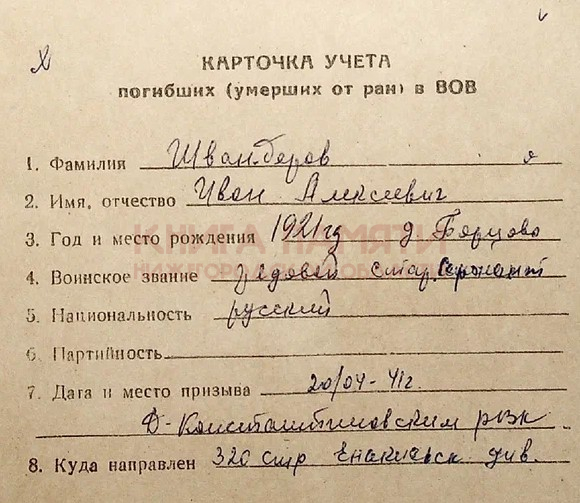 КАРТОЧКА УЧЕТА
погибших (умерших от ран) в ВОВ
1. Фамилия Швандеров
2. Имя, отчество Иван Алексеевич
3. Год и место рождения 1921г д. Борцово
КНИГА ПАМЯТИ
4. Воинское звание рядовой стар. сержант
5. Национальность русский
6. Партийность
7. Дата и место призыва 20/04-41г.
Д-Константиновским рвк
8. Куда направлен 320 стр Енакиевск див.